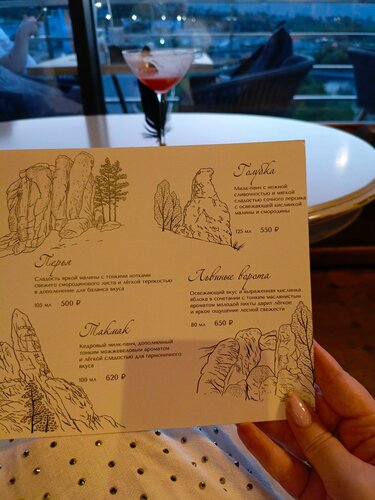 Голубка
Милк-панч с нежной
сливочностью и мягкой
сладостью сочного персика
с освежающей кислинкой
малины и смородины
125 мл 550 ₽
Перья
Сладость яркой малины с тонкими нотками
свежего смородинового листа и лёгкой терпкостью
в дополнение для баланса вкуса
105 мл 500 ₽
Львиные ворота
Освежающий вкус и выраженная кислинка
яблока в сочетании с тонким маслянистым
ароматом молодой пихты дарит лёгкое
и яркое ощущение лесной свежести
80 мл 650 ₽
Такмак
Кедровый милк-панч, дополненный
тонким можжевеловым ароматом
и лёгкой сладостью для гармоничного
вкуса
100 мл 620 ₽